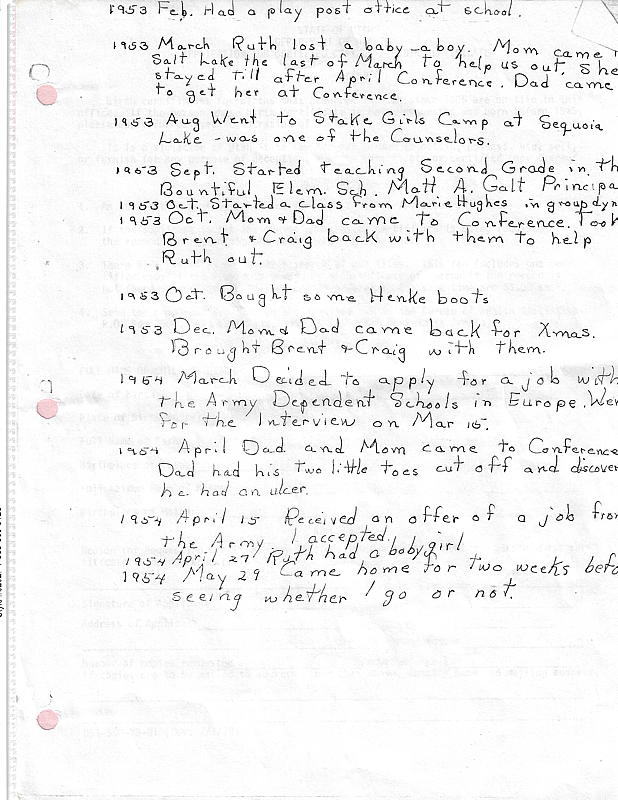 1953 Feb. Had a play post office at school.
1953 March Ruth lost a baby - a boy. Mom came
Salt Lake the last of March to help us out. She
stayed till after April Conference. Dad came
to get her at Conference.
1953 Aug Went to Stake Girls Camp at Sequoia
Lake - was one of the Counselors.
1953 Sept. Started teaching Second Grade in th
Bountiful Elem. Sch. Matt A. Galt Principa
1953 Oct. Started a class from Marie Hughes in group dyn
1953 Oct. Mom & Dad came to Conference. Took
Brent & Craig back with them to help
Ruth out.
1953 Oct. Bought some Henke boots
1953 Dec. Mom & Dad came back for Xmas.
Brought Brent & Craig with them.
1954 March Decided to apply for a job with
the Army Dependent Schools in Europe. Wen
for the Interview on Mar 15.
1954 April Dad and Mom came to Conference
Dad had his two little toes cut off and discover
he had an ulcer.
1954 April 15 Received an offer of a job from
the Army I accepted.
1954 April 27 Ruth had a baby girl
1954 May 29 Came home for two weeks befo
seeing whether I go or not.